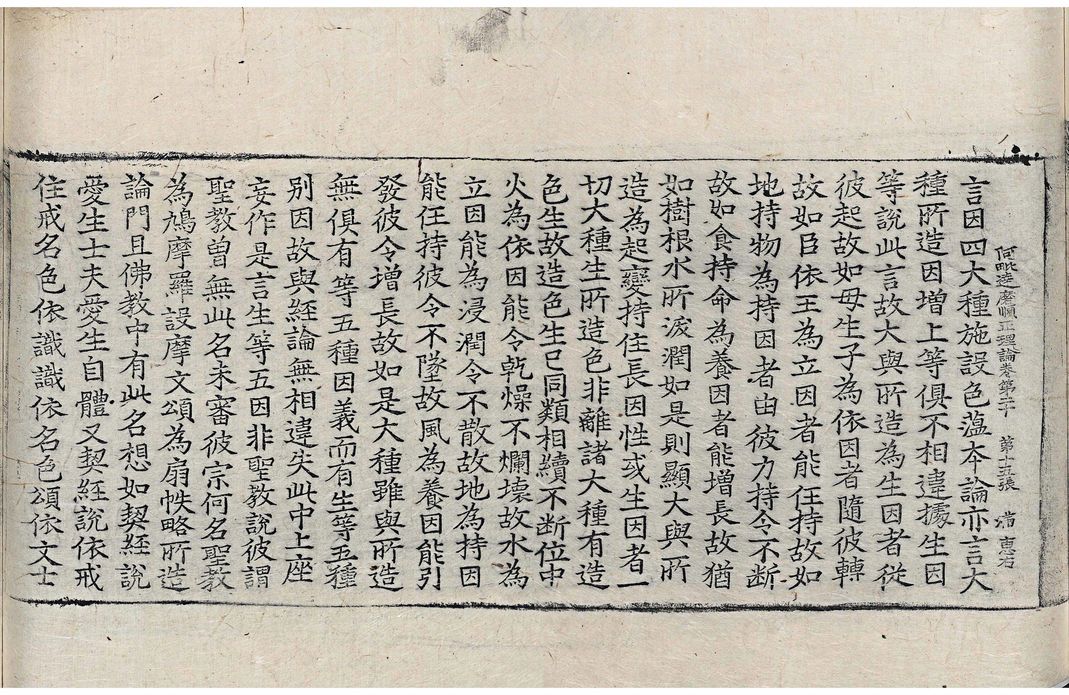 阿毗達磨順正理論卷第二十 第十五張 造 惠君
言因四大種施設色蕰本論亦言大
種所造因增上等俱不相違據生因
等說此言故大與所造為生因者從
彼起故如母生子為依因者隨彼轉
故如臣依王為立因者能任持故如
地持物為持因者由彼力持令不斷
故如食持命為養因者能增長故猶
如樹根水所沃潤如是則顯大與所
造為起變持住長因性或生因者一
切大種生所造色非離諸大種有造
色生故造色生已同類相續不断位中
火為依因能令乾燥不爛壞故水為
立因能為浸潤令不散故地為持因
能任持彼令不墜故風為養因能引
發彼令增長故如是大種雖與所造
無俱有等五種因義而有生等五種
別因故與經論無相違失此中上座
妄作是言生等五因非聖教說彼謂
聖教曾無此名未審彼宗何名聖教
為鳩摩羅設摩文頌為扇帙略所造
論門且佛教中有此名想如契經說
愛生士夫愛生自體又契經說依戒
住戒名色依識識依名色頌依文士